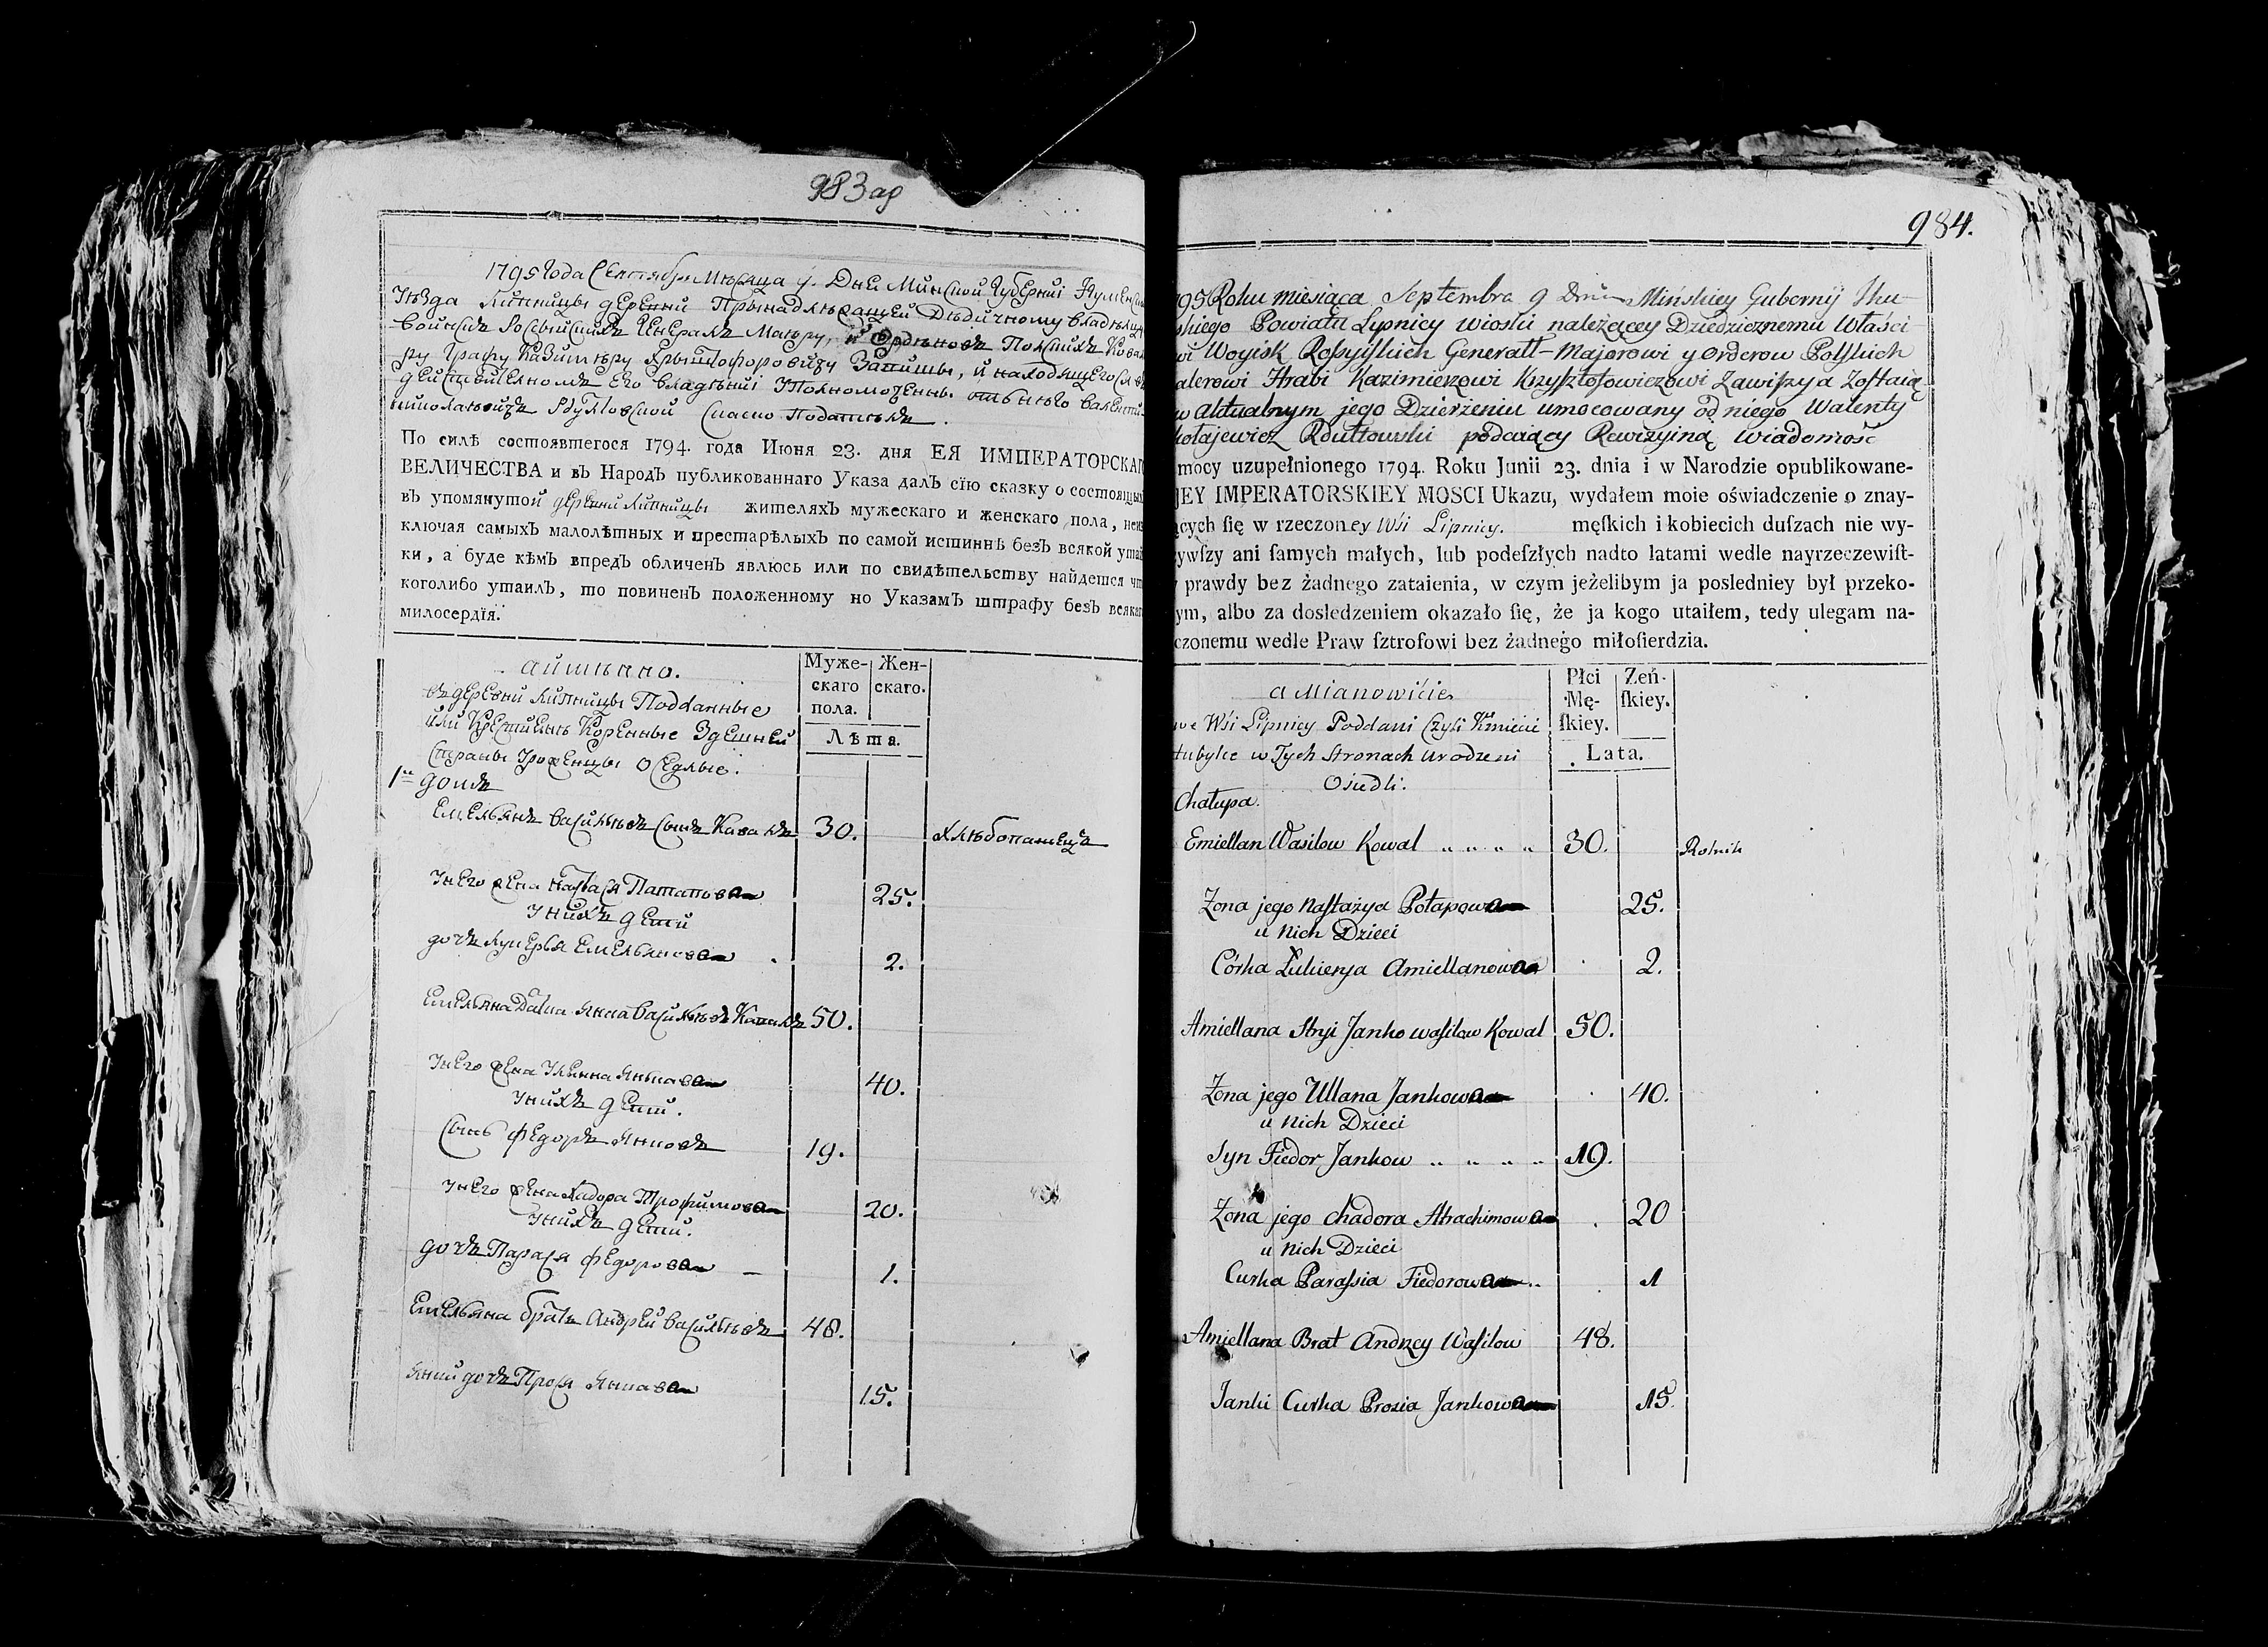 983 ар
1795 Года Сентября Мѣсяца 9. Дня Минской Губерніи
Уѣзда Липницы деревни Принадлежащей Дѣдичному владѣльцу
войскъ Россыйскихъ Генералъ Маіору, и Орденовъ Полскихъ
ру Графу Казимѣру Крыштофоровичу Завишы, и находящегося въ
действителномъ его владѣніи Уполномоченъ отъ него валенты
николаевичъ Рдултовской Скаску Подаюсь
По силѣ состоявшегося 1794. года Июня 23. дня ЕЯ ИМПЕРАТОРСКАГ
ВЕЛИЧЕСТВА и въ Народъ публикованнаго Указа далъ сїю сказку о состоящи
въ упомянутой деревни Липницы жителяхъ мужескаго и женскаго пола, неис
ключая самыхъ малолѣтныхъ и престарѣлыхъ по самой истиннѣ безъ всякой утай
ки, а буде кѣмъ впредъ обличенъ явлюсь или по свидѣтельству найдется чт
коголибо утаилъ, то повиненъ положенному но Указамъ штрафу безъ всякаг
милосердїя.
а имѣнно.
въ деревни Липницы Подданные
или Крестьянѣ Коренные Здешней
Страны Уроженцы Оседлые.
Муже-
скаго
пола.
Жен-
скаго.
Лѣта.
1й домъ
Емельянъ васильевъ сынъ Кавалъ 30. хлѣбопашецъ
У него жена Настася Патапова 25.
У нихъ дети
дочь Лукерья Емельянова . 2.
Емельяна Дятка Янка васильевъ Кавалъ 50.
У него жена Ульяна Янкава 40.
У нихъ дети.
Сынъ Федоръ Янковъ 19.
У него жена Хадора Трофимова 20.
У нихъ дети.
дочь Парася Федорова — 1.
Емельяна братъ Андрей васильевъ 48.
Янки дочь Прося Янкава 15.
984.
95 Roku miesiąca Septembra 9 Dnia Mińskiey Gubernij Ihu-
skiego Powiatu Lypnicy wioski należącey Dziedzicznemu Właści-
wi Woyisk Rossyiskich Generałł-Majorowi y Orderow Polskich
alerowi Hrabi Kazimierzowi Krzysztofowiczowi Zawiszy a zostaią
w aktualnym jego Dzierżeniu umocowany od niego Walenty
kołajewicz Rdułtowski podaiący Rewizyiną Wiadomość
mocy uzupełnionego 1794. Roku Junii 23. dnia i w Narodzie opublikowane-
JEY IMPERATORSKIEY MOSCI Ukazu, wydałem moie oświadczenie o znay-
ących się w rzeczoney Wsi Lipnicy. męskich i kobiecich duszach nie wy-
ywszy ani samych małych, lub podeszłych nadto latami wedle nayrzeczewist-
prawdy bez żadnego zataienia, w czym jeżelibym ja posledniey był przeko-
ym, albo za dosledzeniem okazało się, że ja kogo utaiłem, tedy ulegam na-
czonemu wedle Praw sztrofowi bez żadnego miłosierdzia.
a Mianowicie
we Wsi Lipnicy Poddani Czyli Kmieci
tubylce w Tych stronach urodzeni
Osiedli.
Płci
Mę-
skiey.
Zeń-
skiey.
Lata.
Chałupa.
Emiellan Wasilow Kowal „ „ „ „ 30. Rolnik
Zona jego Nastazya Potapowa 25.
u nich Dzieci
Córka Łukierya Amiellanowa 2.
Amiellana Stryi Janko wasilow Kowal 50.
Zona jego Ullana Jankowa 40.
u nich Dzieci
Syn Fiedor Jankow „ „ „ „ 19.
Zona jego Chadora Atrachimowa 20
u nich Dzieci
Curka Parassia Fiedorowa 1
Amiellana Brat Andrzey Wasilow 48.
Janki Curka Prosia Jankowa 15.